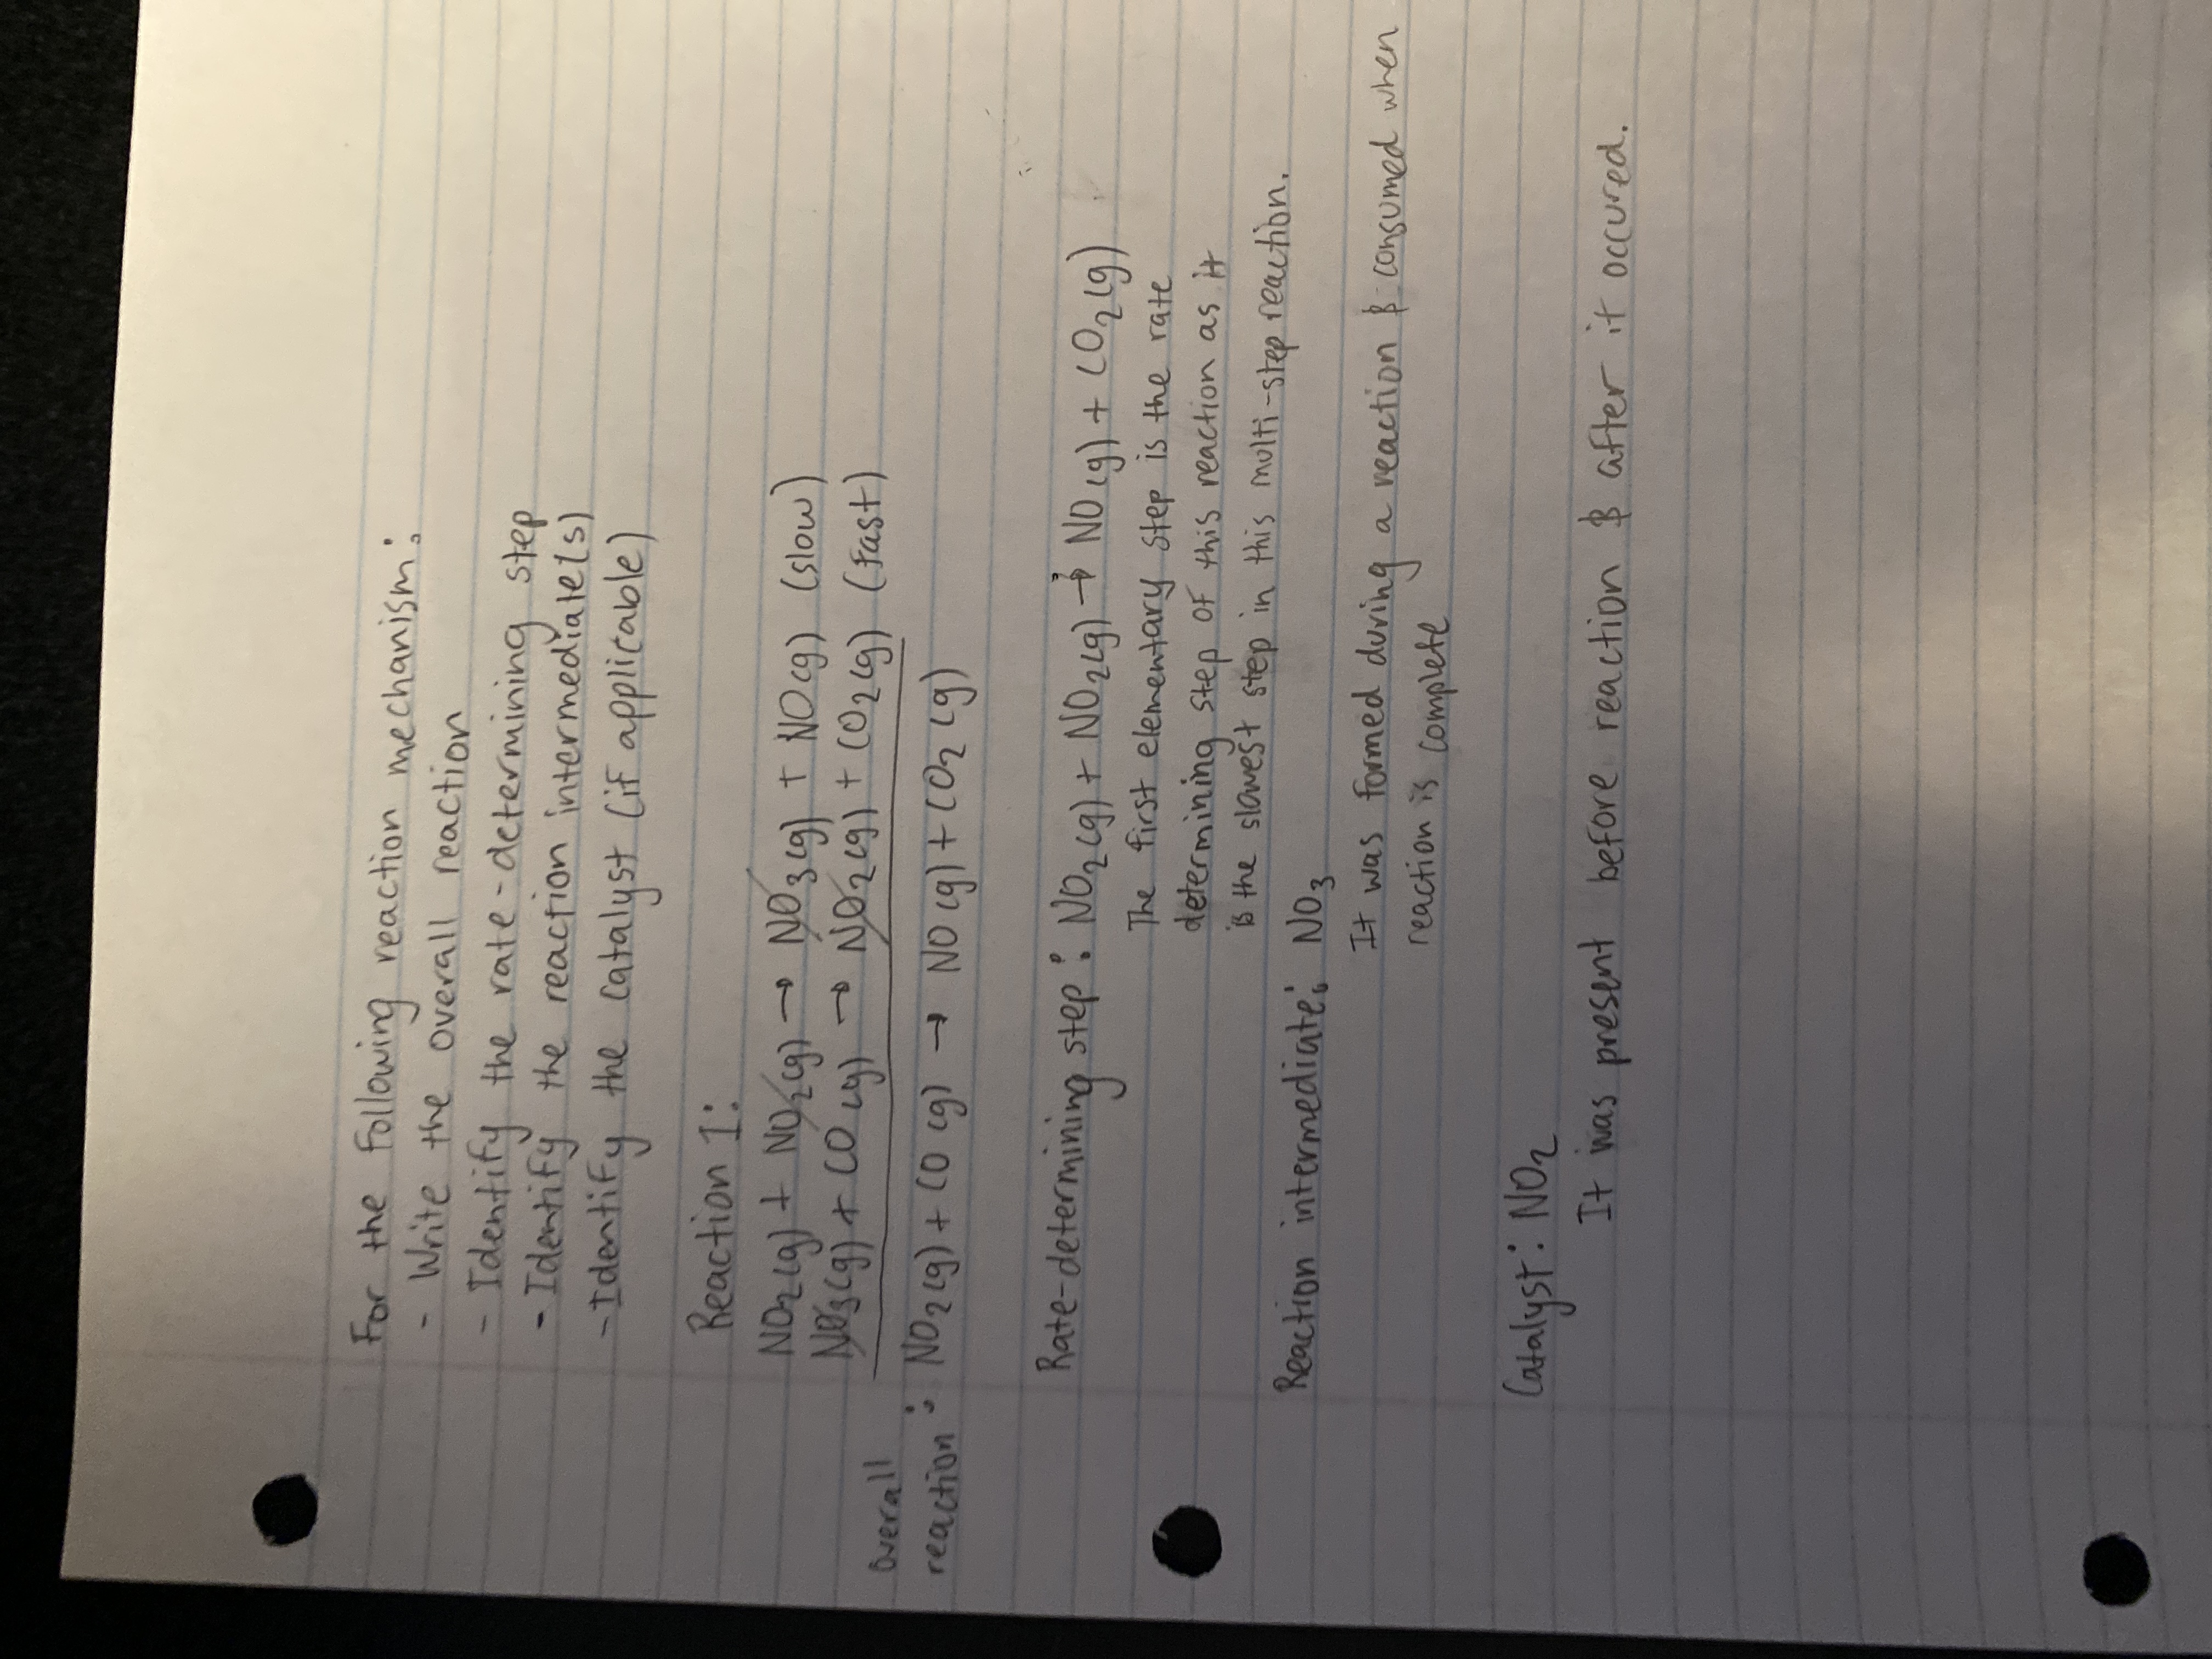 For the following reaction mechanism:
- Write the overall reaction
- Identify the rate-determining step
- Identify the reaction intermediate(s)
- Identify the catalyst (if applicable)
Reaction 1:
NO2(g) + NO2(g) → NO3(g) + NO(g) (slow)
NO3(g) + CO(g) → NO2(g) + CO2(g) (fast)
overall
reaction: NO2(g) + CO(g) → NO(g) + CO2(g)
Rate-determining step: NO2(g) + NO2(g) → NO(g) + CO2(g)
The first elementary step is the rate
determining step of this reaction as it
is the slowest step in this multi-step reaction.
Reaction intermediate: NO3
It was formed during a reaction & consumed when
reaction is complete
Catalyst: NO2
It was present before reaction & after it occured.